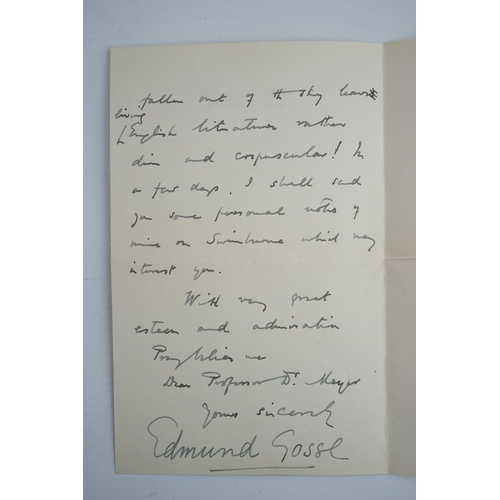 fallen out of the sky leaves
living
English literature rather
dim and crepuscular! In
a few days, I shall send
you some personal notes of
mine on Swinburne which may
interest you.
With very great
esteem and admiration
Pray believe me
Dear Professor Dr. Meyer
Yours sincerely
Edmund Gosse